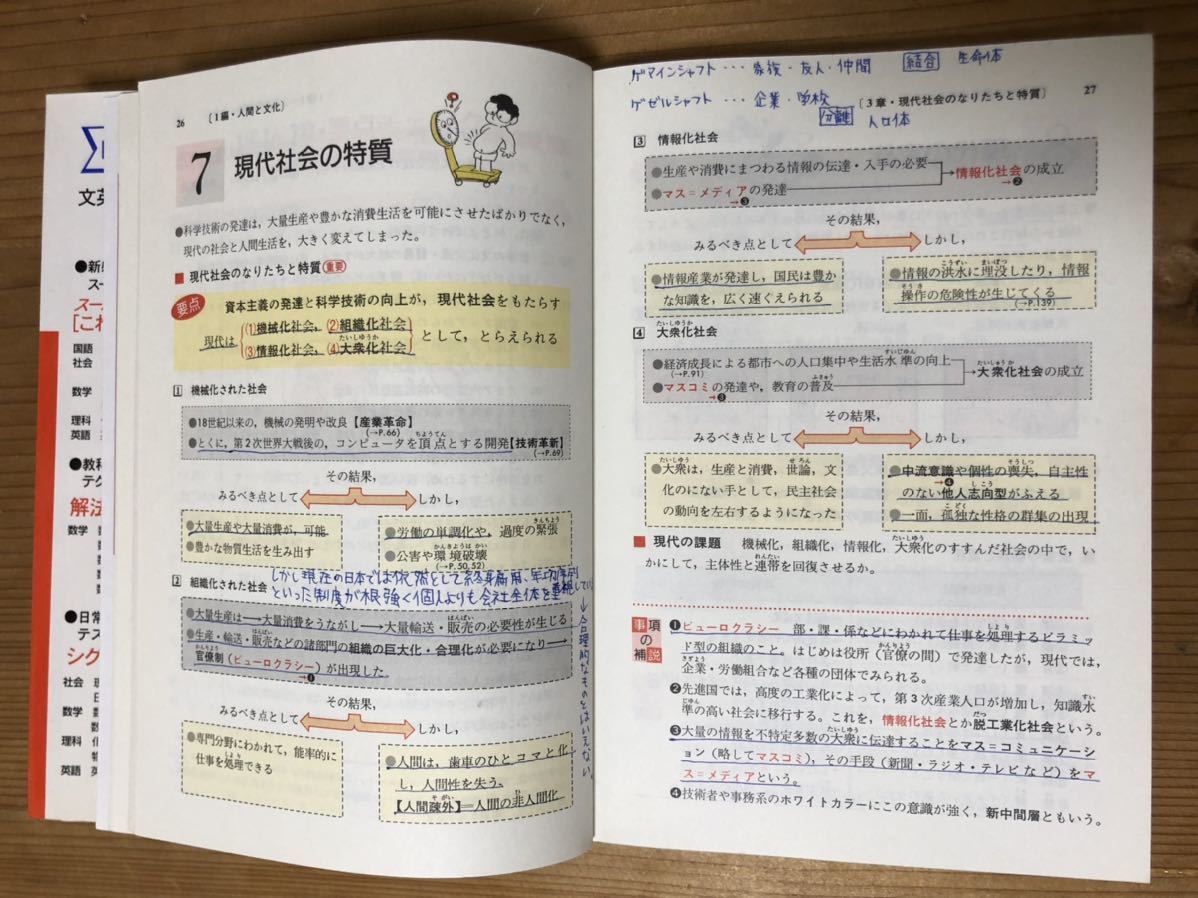 文英
●新
スー
スーパ
[これ
国語
社会
数学
理科
英語
●教科
テク
解法
数学
●日常
テス
シグ
社会
数学
理科
英語
26
〔1編・人間と文化〕
7
現代社会の特質
●科学技術の発達は，大量生産や豊かな消費生活を可能にさせたばかりでなく，
現代の社会と人間生活を，大きく変えてしまった。
■ 現代社会のなりたちと特質 重要
要点
資本主義の発達と科学技術の向上が，現代社会をもたらす
現代は
(1)機械化社会，(2)組織化社会
たいしゆうか
(3)情報化社会，(4)大衆化社会
として，とらえられる
1 機械化された社会
●18世紀以来の，機械の発明や改良【産業革命】
(→P.66)
ちょうてん
●とくに，第2次世界大戦後の，コンピュータを頂点とする開発【技術革新】
(→P.69)
その結果，
みるべき点として
しかし，
●大量生産や大量消費が，可能
●豊かな物質生活を生み出す
きんちょう
●労働の単調化や，過度の緊張
かんきようは かい
●公害や環境破壊
(→P.50,52)
2 組織化された社会
しかし現在の日本では依然として終身雇用、年功序列
といった制度が根強く個人よりも会社全体を重視してい
→合理的なものとはいえない。
はんばい
●大量生産は→大量消費をうながし→大量輸送・販売の必要性が生じる
はんばい
●生産・輸送・販売などの諸部門の組織の巨大化・合理化が必要になり→
かんりょう
官僚制(ビューロクラシー)が出現した
→❶
その結果，
みるべき点として
しかし，
●専門分野にわかれて，能率的に
しより
仕事を処理できる
●人間は，歯車のひとコマと化
し，人間性を失う。
そ がい
【人間疎外】＝人間の非人間化
ゲマインシャフト・・・家族・友人・仲間　結合　生命体
ゲゼルシャフト・・・企業・学校
分離　人口体
〔3章・現代社会のなりたちと特質〕
27
3 情報化社会
●生産や消費にまつわる情報の伝達・入手の必要
●マス＝メディアの発達
→❸
→情報化社会の成立
→❷
その結果，
みるべき点として
しかし，
●情報産業が発達し，国民は豊か
な知識を，広く速ぐえられる
こうずい まいぼつ
●情報の洪水に埋没したり，情報
そう さ
操作の危険性が生じてくる
(→P.139)
たいしゆうか
4 大衆化社会
すいじゆん
●経済成長による都市への人口集中や生活水準の向上
(→P.91)
ふきゅう
●マスコミの発達や，教育の普及
→❸
たいしゆう か
→大衆化社会の成立
その結果，
みるべき点として
しかし，
たいしゆう　せ ろん
●大衆は，生産と消費，世論，文
化のにない手として，民主社会
の動向を左右するようになった
そうしつ
●中流意識や個性の喪失，自主性
→❹　しこう
のない他人志向型がふえる
こ どく
●一面，孤独な性格の群集の出現
たいしゆう
■ 現代の課題　機械化，組織化，情報化，大衆化のすすんだ社会の中で，い
れんたい
かにして，主体性と連帯を回復させるか。
事項の補説
しより
❶ビューロクラシー　部・課・係などにわかれて仕事を処理するピラミッ
かんりょう
ド型の組織のこと。はじめは役所（官僚の間）で発達したが，現代では，
きぎょう
企業・労働組合など各種の団体でみられる。
すい
❷先進国では，高度の工業化によって，第3次産業人口が増加し，知識水
じゆん　だつ
準の高い社会に移行する。これを，情報化社会とか脱工業化社会という。
たいしゆう
❸大量の情報を不特定多数の大衆に伝達することをマス＝コミュニケーシ
ョン（略してマスコミ），その手段（新聞・ラジオ・テレビなど）をマ
ス＝メディアという。
❹技術者や事務系のホワイトカラーにこの意識が強く，新中間層ともいう。